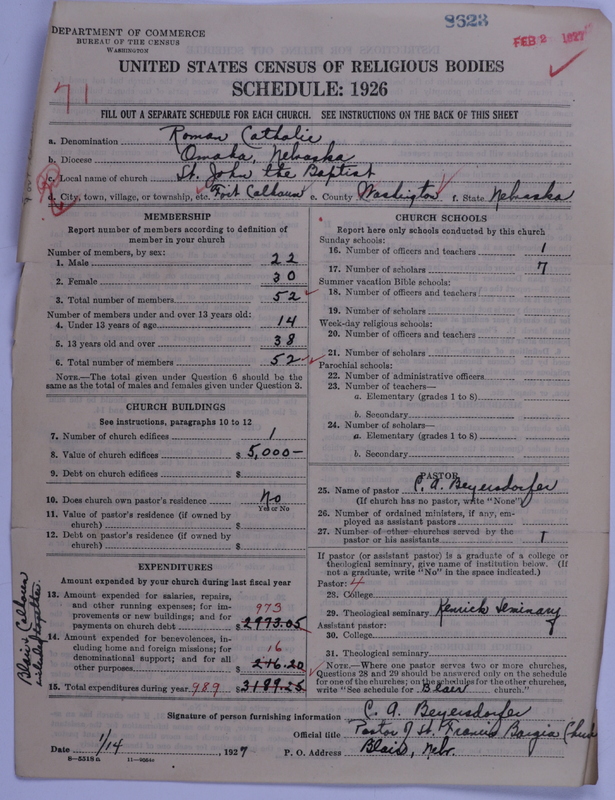 8623
FEB 2 1927
DEPARTMENT OF COMMERCE
BUREAU OF THE CENSUS
WASHINGTON
UNITED STATES CENSUS OF RELIGIOUS BODIES
SCHEDULE: 1926
71
FILL OUT A SEPARATE SCHEDULE FOR EACH CHURCH. SEE INSTRUCTIONS ON THE BACK OF THIS SHEET
a. Denomination Roman Catholic
b. Diocese Omaha, Nebraska
c. Local name of church St. John the Baptist
d. City, town, village, or township, etc. Fort Calhoun e. County Washington f. State Nebraska
MEMBERSHIP
Report number of members according to definition of
member in your church
Number of members, by sex:
1. Male 22
2. Female 30
3. Total number of members 52
Number of members under and over 13 years old:
4. Under 13 years of age 14
5. 13 years old and over 38
6. Total number of members 52
NOTE.—The total given under Question 6 should be the
same as the total of males and females given under Question 3.
CHURCH BUILDINGS
See instructions, paragraphs 10 to 12
7. Number of church edifices 1
8. Value of church edifices $ 5,000—
9. Debt on church edifices $
10. Does church own pastor's residence No
Yes or No
11. Value of pastor's residence (if owned by
church) $
12. Debt on pastor's residence (if owned by
church) $
EXPENDITURES
Amount expended by your church during last fiscal year
13. Amount expended for salaries, repairs,
and other running expenses; for im-
provements or new buildings; and for
payments on church debt $ 2973.05
973
14. Amount expended for benevolences, in-
cluding home and foreign missions; for
denominational support; and for all
other purposes $ 216.20
16
15. Total expenditures during year 989 $ 3189.25
Blair & Calhoun
CHURCH SCHOOLS
Report here only schools conducted by this church
Sunday schools:
16. Number of officers and teachers 1
17. Number of scholars 7
Summer vacation Bible schools:
18. Number of officers and teachers
19. Number of scholars
Week-day religious schools:
20. Number of officers and teachers
21. Number of scholars
Parochial schools:
22. Number of administrative officers
23. Number of teachers—
a. Elementary (grades 1 to 8)
b. Secondary
24. Number of scholars—
a. Elementary (grades 1 to 8)
b. Secondary
PASTOR
25. Name of pastor C. A. Beyersdorfer
(If church has no pastor, write "None")
26. Number of ordained ministers, if any, em-
ployed as assistant pastors
27. Number of other churches served by the
pastor or his assistants 1
If pastor (or assistant pastor) is a graduate of a college or
theological seminary, give name of institution below. (If
not a graduate, write "No" in the space indicated.)
Pastor: 4
28. College
29. Theological seminary Kenrick Seminary
Assistant pastor:
30. College
31. Theological seminary
NOTE.—Where one pastor serves two or more churches,
Questions 28 and 29 should be answered only on the schedule
for one of the churches; on the schedules for the other churches,
write "See schedule for Blair church."
Signature of person furnishing information C. A. Beyersdorfer
Official title Pastor of St. Francis Borgia Church
Date 1/14 1927 P. O. Address Blair, Nebr.
8—5318 a 11—9364